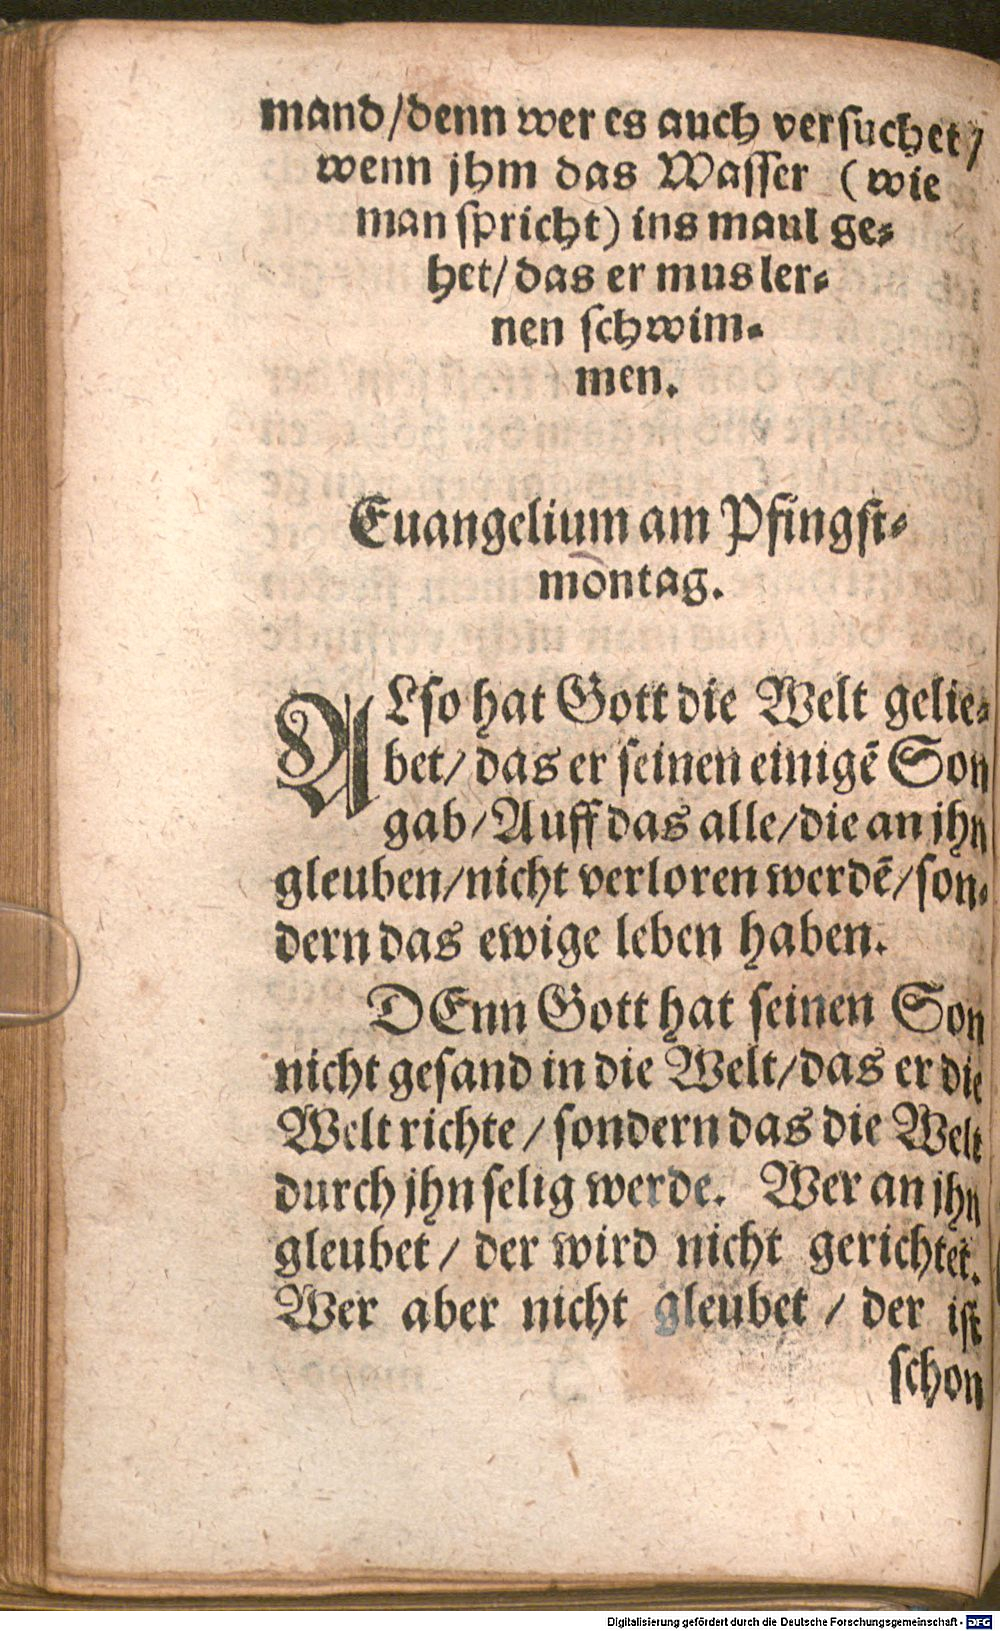 mand/denn wer es auch versuchet/
wenn jhm das Wasser (wie
man spricht) ins maul ge⸗
het/das er mus ler⸗
nen schwim⸗
men.
Euangelium am Pfingst⸗
montag.
ALso hat Gott die Welt gelie⸗
bet/ das er seinen einigẽ Son
gab/Auff das alle/die an jhn
gleuben/nicht verloren werdẽ/son⸗
dern das ewige leben haben.
DEnn Gott hat seinen Son
nicht gesand in die Welt/das er die
Welt richte/sondern das die Welt
durch jhn selig werde. Wer an jhn
gleubet/ der wird nicht gerichtet.
Wer aber nicht gleubet / der ist
schon
Digitalisierung gefördert durch die Deutsche Forschungsgemeinschaft - DFG